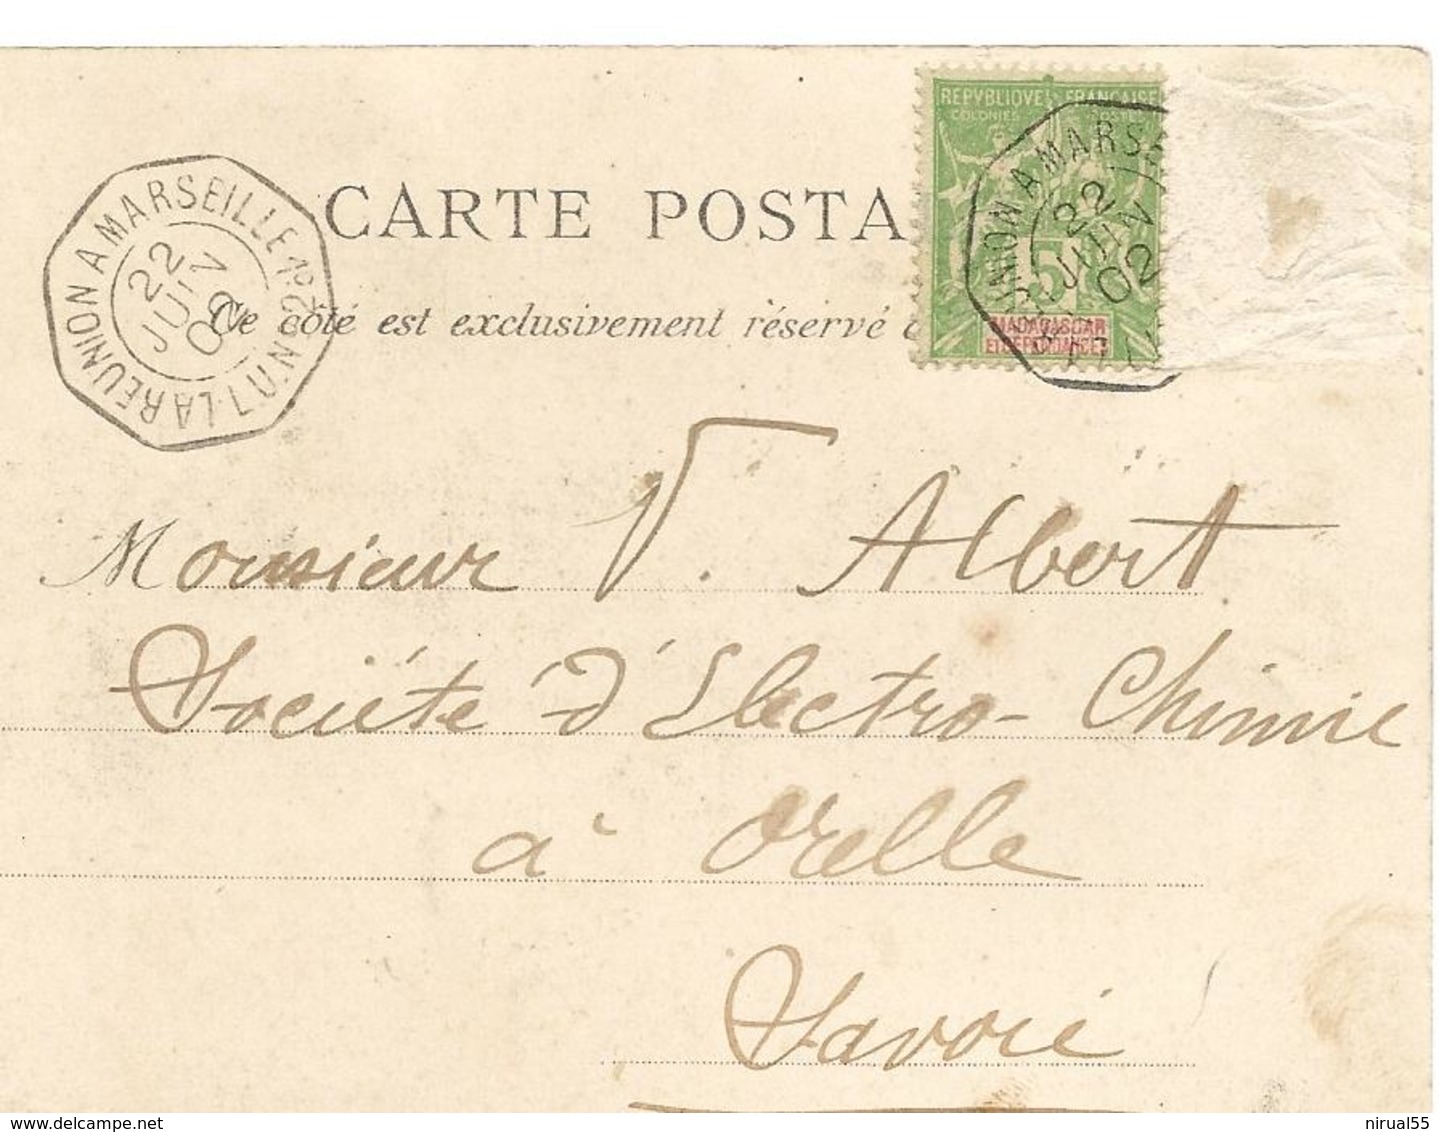 REPVBLIQVE FRANÇAISE
COLONIES POSTES
5
MADAGASCAR
ET DÉPENDANCES
UNION A MARSE
22
JUIN
02
LA REUNION A MARSEILLE L.U. Nº2
22
JUIN
02
CARTE POSTA
Ce côté est exclusivement réservé
Monsieur V. Albert
Société d'Electro-Chimie
à Orelle
Savoie
delcampe.net
nirual55